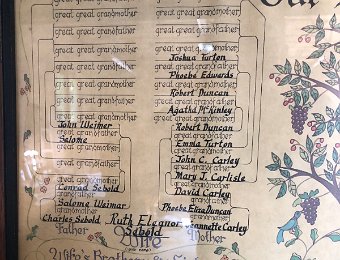 Our
great great grandmother
great great grandfather
great great grandmother
great great grandfather
great great grandmother
great great grandfather
great great grandmother
John Weimer
great grandfather
Salome
great grandmother
great grandfather
great grandmother
Conrad Sebold
grandfather
Salome Weimar
grandmother
Charles Sebold
Father
great great grandmother
great great grandfather
great great grandmother
Joshua Turton
great great grandfather
Phoebe Edwards
great great grandmother
Robert Duncan
great great grandfather
Agatha McKinley
great great grandmother
Robert Duncan
great grandfather
Emma Turton
great grandmother
John C. Carley
great grandfather
Mary J. Carlisle
great grandmother
David Carley
grandfather
Phoebe Eliza Duncan
grandmother
Jeannette Carley
Mother
Ruth Eleanor
Sebold
Wife
Wife's Brothers &